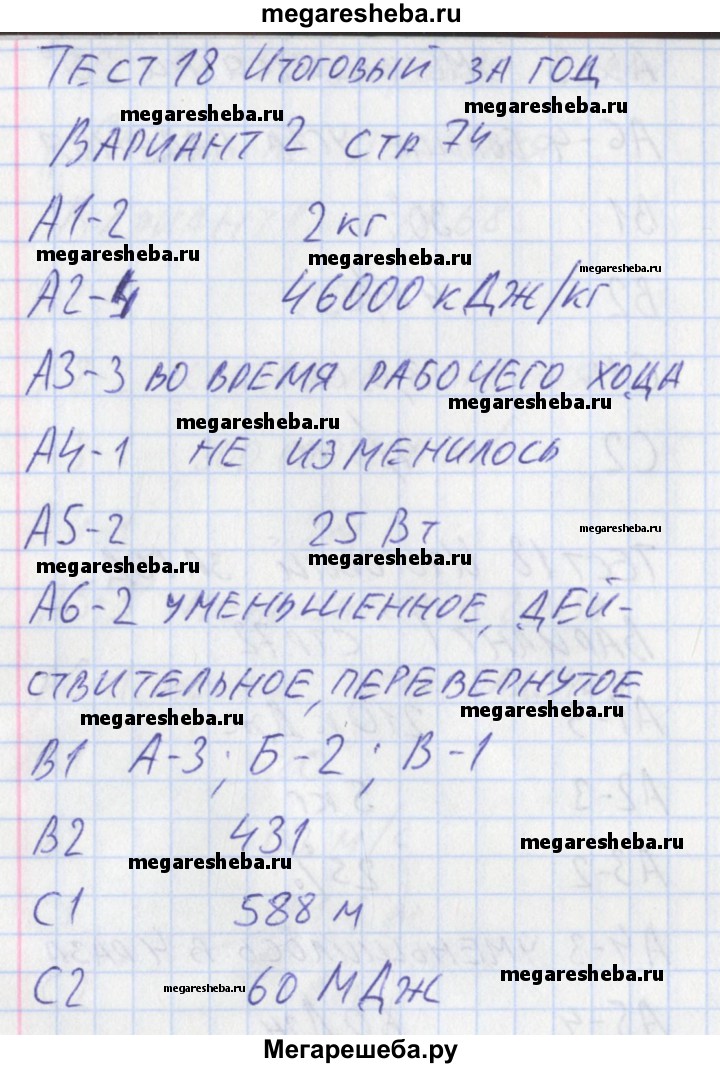 megaresheba.ru
ТЕСТ 18 ИТОГОВЫЙ ЗА ГОД
megaresheba.ru megaresheba.ru
ВАРИАНТ 2 СТР 74
А1-2 2 кг
megaresheba.ru megaresheba.ru megaresheba.ru
А2-4 46000 кДж/кг
А3-3 ВО ВРЕМЯ РАБОЧЕГО ХОДА
megaresheba.ru megaresheba.ru
А4-1 НЕ ИЗМЕНИЛОСЬ
А5-2 25 Вт megaresheba.ru
megaresheba.ru megaresheba.ru
А6-2 УМЕНЬШЕННОЕ, ДЕЙ-
СТВИТЕЛЬНОЕ, ПЕРЕВЕРНУТОЕ
megaresheba.ru megaresheba.ru
В1 А-3; Б-2; В-1
В2 431 megaresheba.ru
megaresheba.ru
С1 588 м
С2 megaresheba.ru 60 МДж megaresheba.ru
Мегарешеба.ру